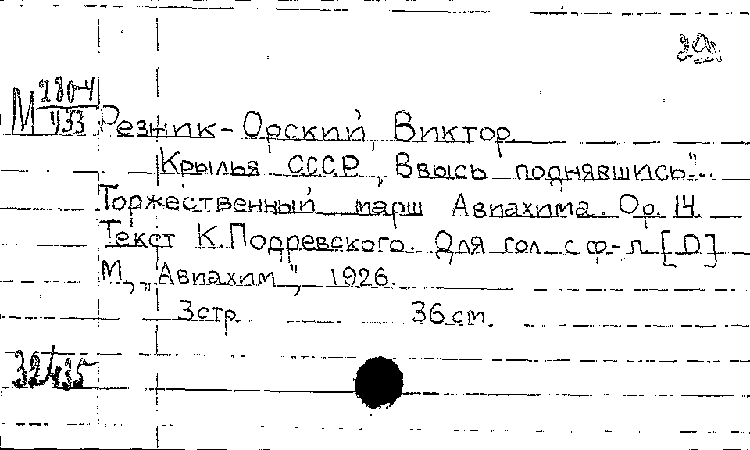 29.
М 280-4
433
Резник-Орский, Виктор.
Крылья СССР, Ввысь поднявшись"..
Торжественный марш Авиахима. Ор. 14.
Текст К. Подревского. Для гол. с ф-п. [D]
М., „Авиахим", 1926.
3 стр. 36 см.
32435